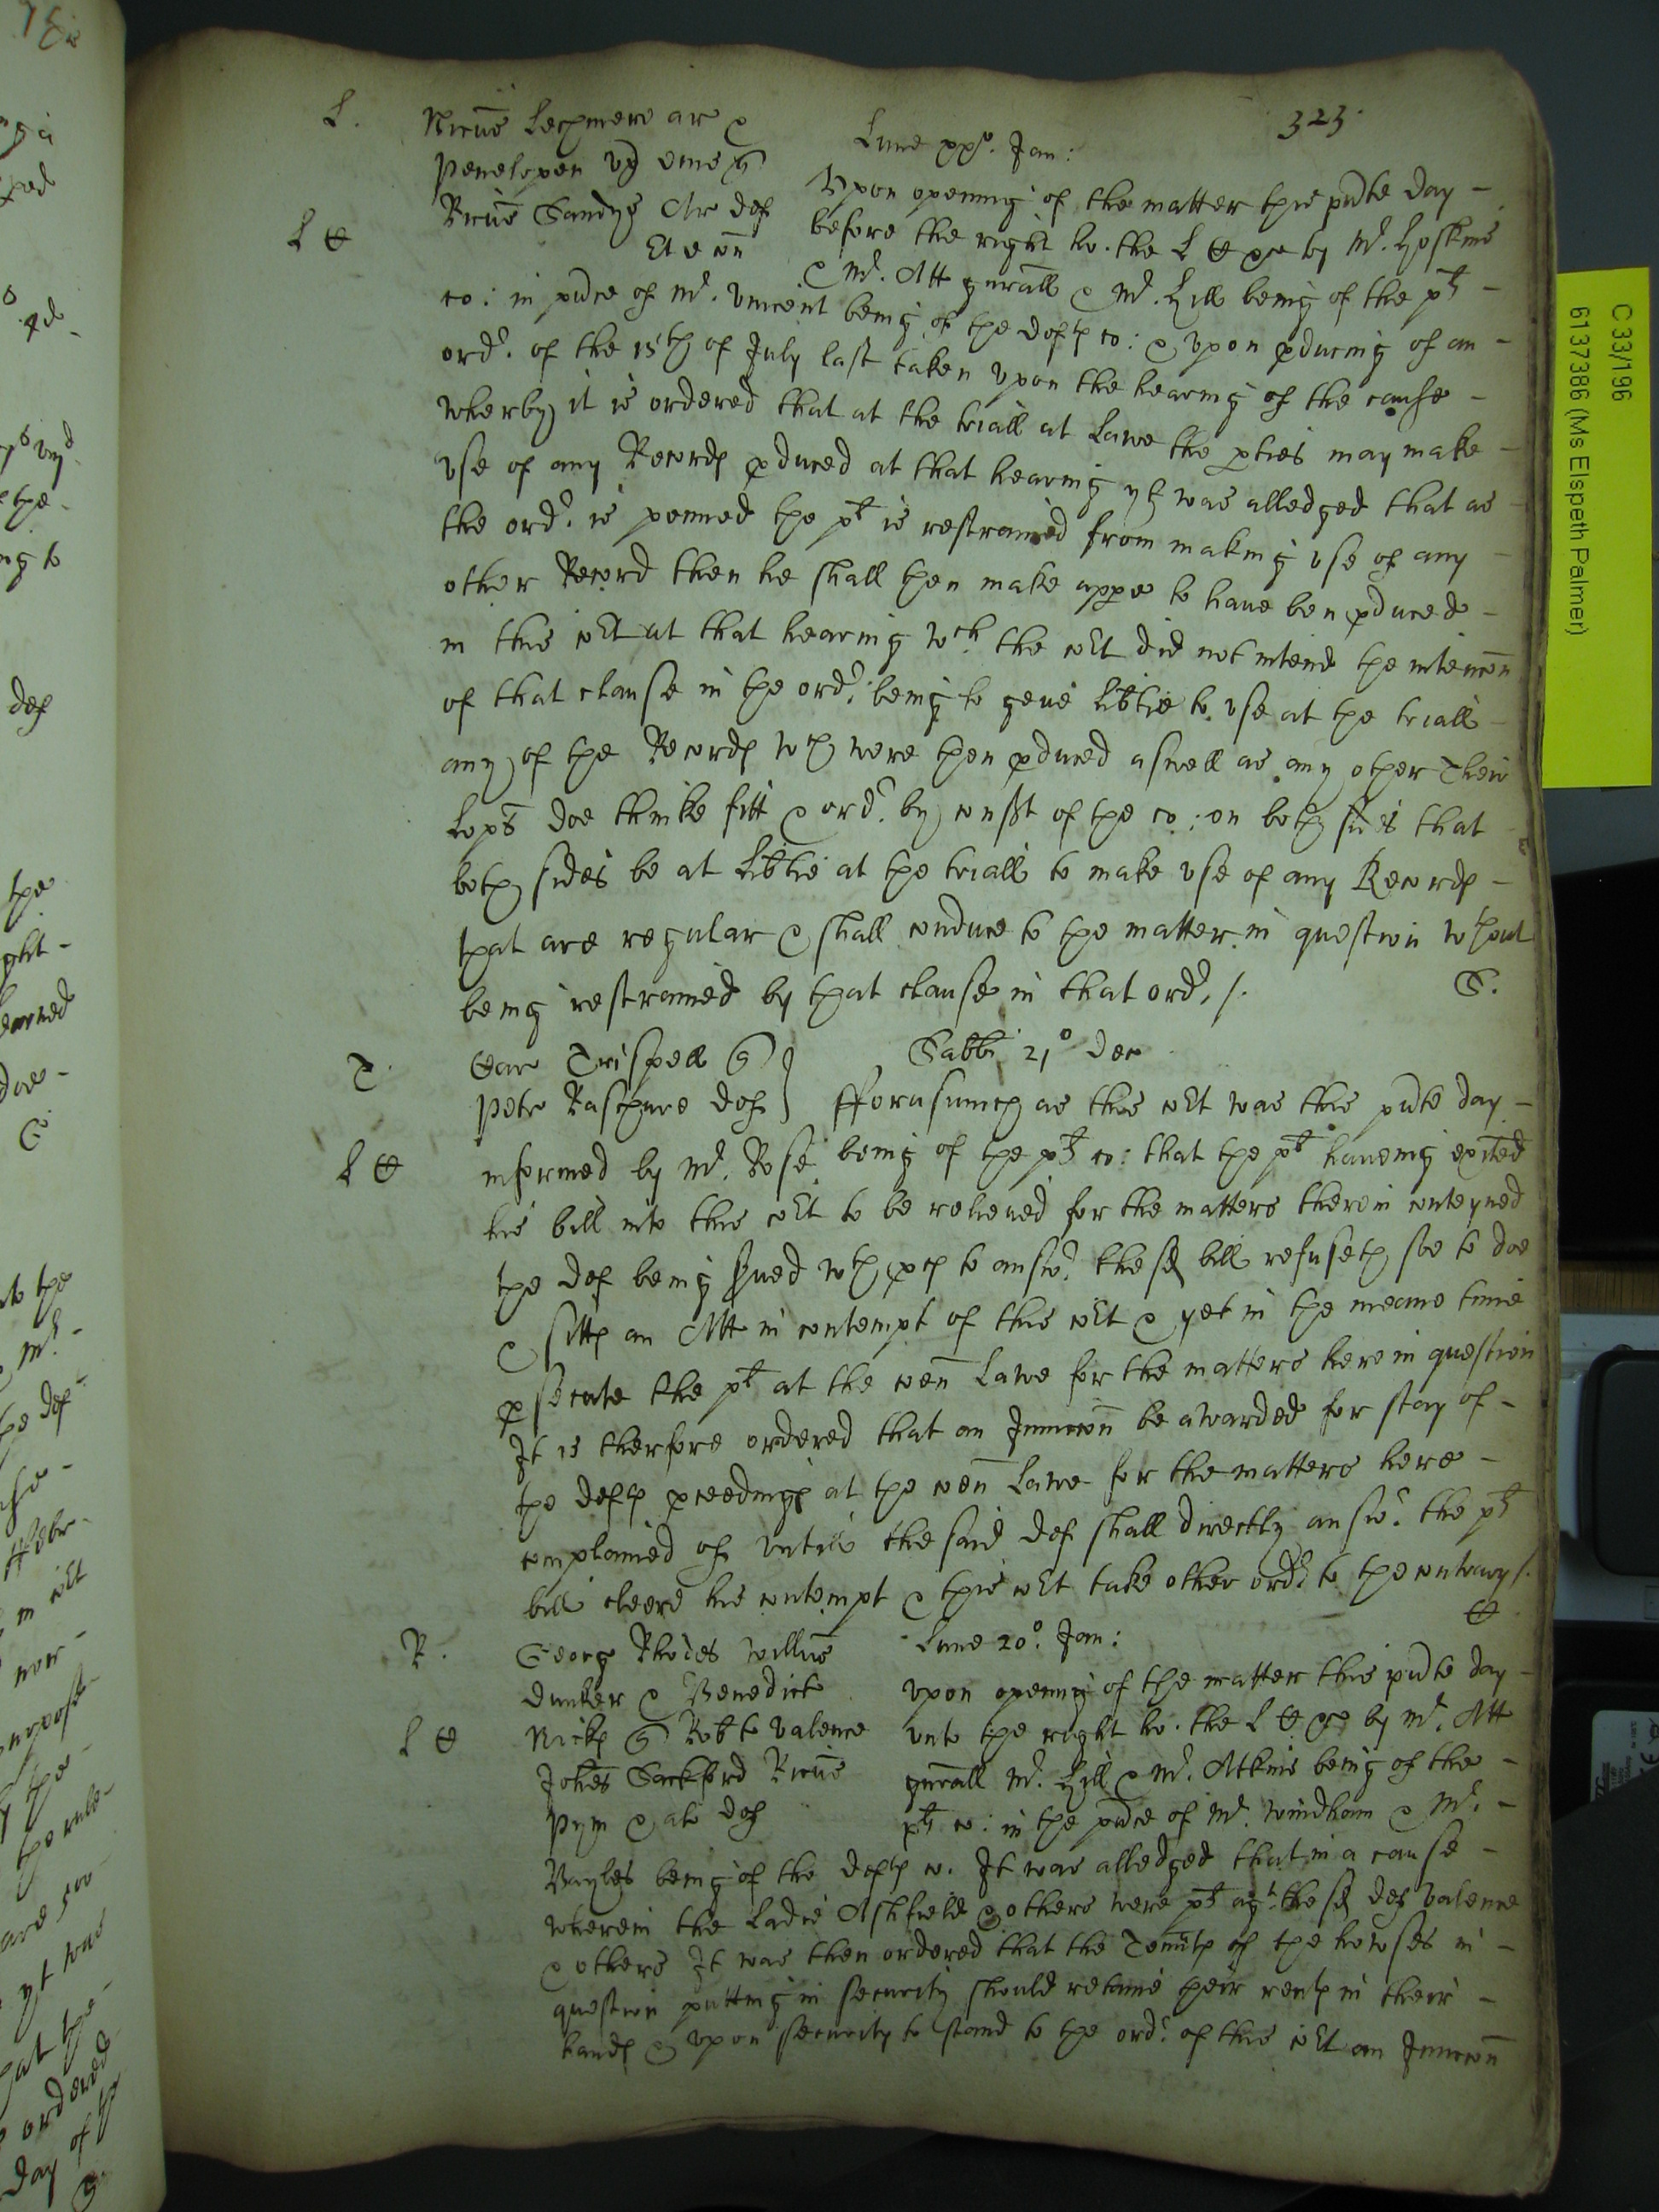 323
L. Nicus Lechmere ar &
Penelopen ux eius q
Ricus Sandys Ar def
Et e con
Lune xxo. Jan:
Upon opening of the matter this pnte day -
L C before the right ho. the L C &c by Mr. Hoskins
& Mr. Att gnrall & Mr. Hill being of the plt -
co: in pnce of Mr. Vincent being of the deftes co: & upon pducing of an -
ordr. of the 15th of July last taken upon the hearing of the cause -
wherby it is ordered that at the triall at Lawe the pties may make -
use of any Recordes pduced at that hearing yt was alledged that as -
the ordr. is penned the plt is restrained from making use of any -
other Record then he shall then make appe to have ben pduced -
in this cort at that hearing wch the cort did not intend the intencon
of that clause in the ordr. being to geve libtie to use at the triall -
any of the Recordes wch were then pduced aswell as any other Their
Lops doe thinke fitt & ordr. by consst of the co: on both sides that -
both sides be at Libtie at the triall to make use of any Recordes -
that are regular & shall conduce to the matter in question wthout
being restrained by that clause in that ordr. /.
S.
T. Trispell q
Petr Raschure def
Sabbi 21o Dec
fforasmuch as this cort was this pnte day -
L C informed by Mr. Rose being of the plt co: that the plt haveing exited
his bill into this cort to be releived for the matters therein conteyned
the def being sved wth pces to answr. the sd bill refuseth soe to doe
& sittes an Att in contempt of this cort & yet in the meane time
psecute the plt at the comon Lawe for the matters here in question
It is therfore ordered that an Iniuncon be awarded for stay of -
the deftes pceedinges at the comon Lawe for the matters here -
complained of untill the said def shall directly answr. the plt
bill cleere his contempt & this cort take other ordr. to the contrary /.
C
R. Georg Rhodes Willus
Dunker & Benedict
L C Nickes q Robto Valence
Johes Sackford Ricus
Pym & al def
Lune 20o. Jan:
upon opening of the matter this pnte day -
unto the right ho. the L C &c by Mr. Att
gnrall Mr. Hill & Mr. Atkins being of the -
plt co: in the pnce of Mr. Windham & Mr. -
Bayles being of the deftes co. It was alledged that in a cause -
wherein the Ladie Ashfield & others were plt agt. the sd def Valence
& others It was then ordered that the Tennts of the howses in -
question putting in security should retaine their rentes in their -
handes & upon security to stand to the ordr. of this cort an Iniuncon
C 33/196
6137386 (Ms Elspeth Palmer)